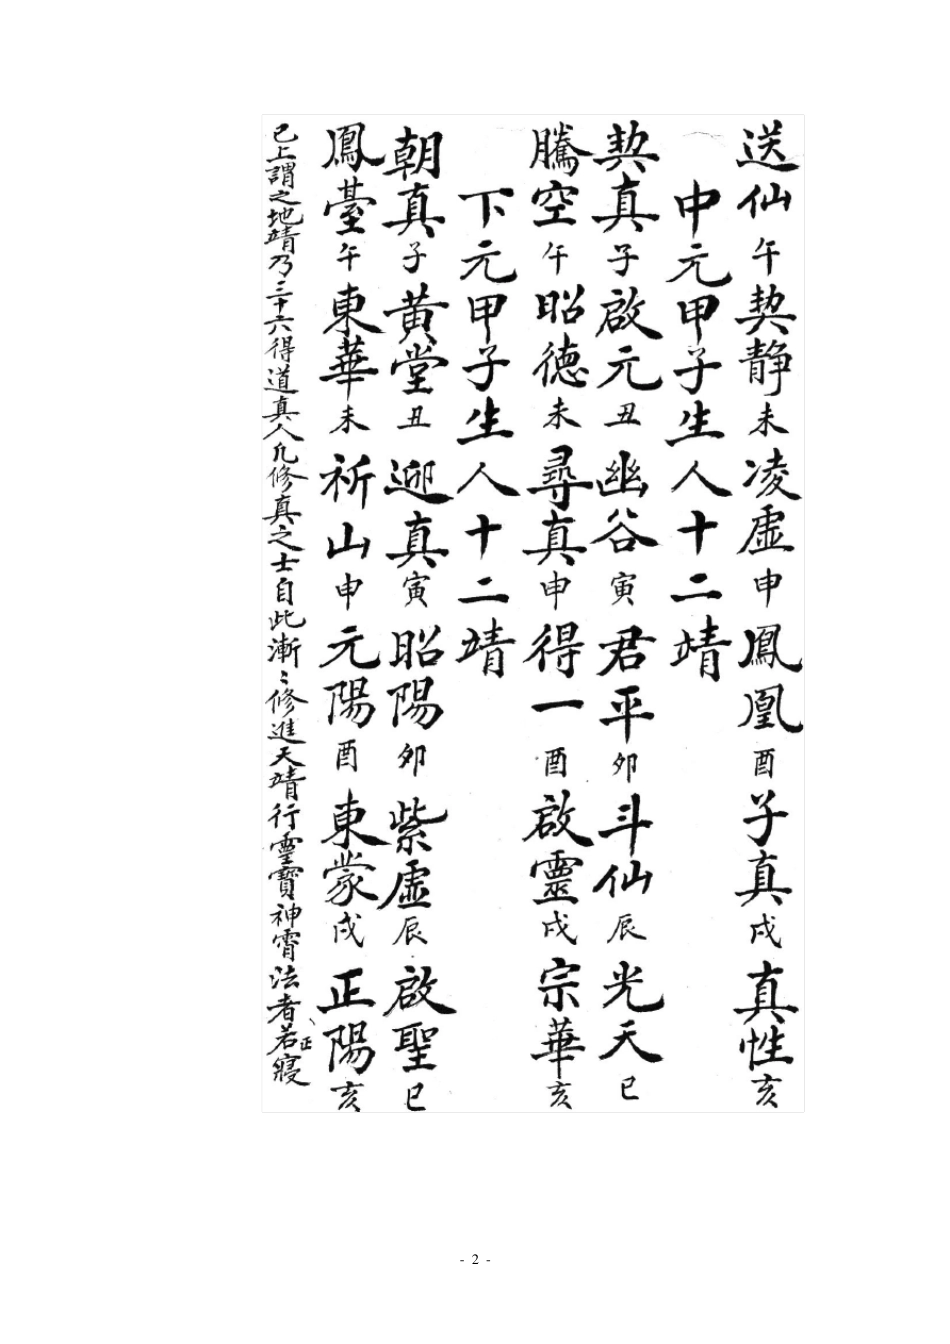 送仙午契靜未凌虛申鳳凰酉子真戌真性亥
中元甲子生人十二靖
契真子啟元丑幽谷寅君平卯斗仙辰光天巳
騰空午昭德未尋真申得一酉啟靈戌宗華亥
下元甲子生人十二靖
朝真子黃堂丑迎真寅昭陽卯紫虛辰啟聖巳
鳳臺午東華未祈山申元陽酉東蒙戌正陽亥
已上謂之地靖乃三十六得道真人凡修真之士自此漸〻修進天靖行靈寶神霄法者若寢
正
- 2 -